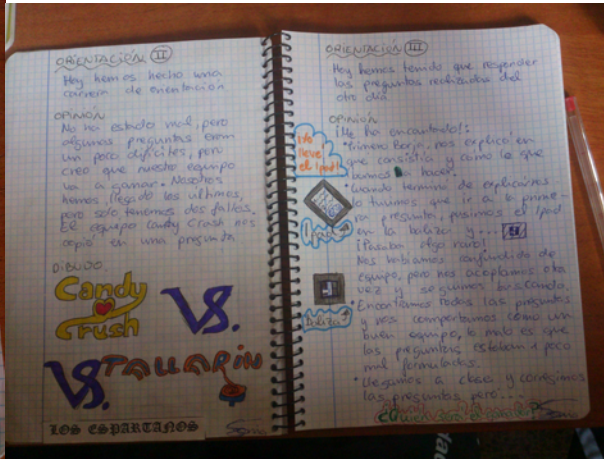 ORIENTACIÓN II
Hoy hemos hecho una
carrera de orientación
OPINIÓN
No ha estado mal, pero
algunas preguntas eran
un poco difíciles, pero
creo que nuestro equipo
va a ganar. Nosotros
hemos llegado los últimos,
pero solo tenemos dos fallos.
El equipo Candy Crush nos
copió en una pregunta
DIBUJO
Candy
Crush
VS.
VS.
TALLARÍN
LOS ESPARTANOS
ORIENTACIÓN III
Hoy hemos tenido que responder
las preguntas realizadas del
otro día.
OPINIÓN
¡Me ha encantado!:
¡Yo
llevé
el Ipad!
Primero Borja, nos explicó en
que consistía y como lo que
íbamos a hacer.
Cuando terminó de explicárnos
lo tuvimos que ir a la prime-
ra pregunta, pusimos el Ipad
en la baliza y ...
Ipad
¡Pasaba algo raro!
Nos habíamos confundido de
equipo, pero nos acoplamos otra
vez y seguimos buscando.
Baliza
Encontramos todas las preguntas
y nos comportamos como un
buen equipo, lo malo es que
las preguntas estaban 1 poco
mal formuladas.
Llegamos a clase y corregimos
las preguntas pero...
¿Quién será el ganador?